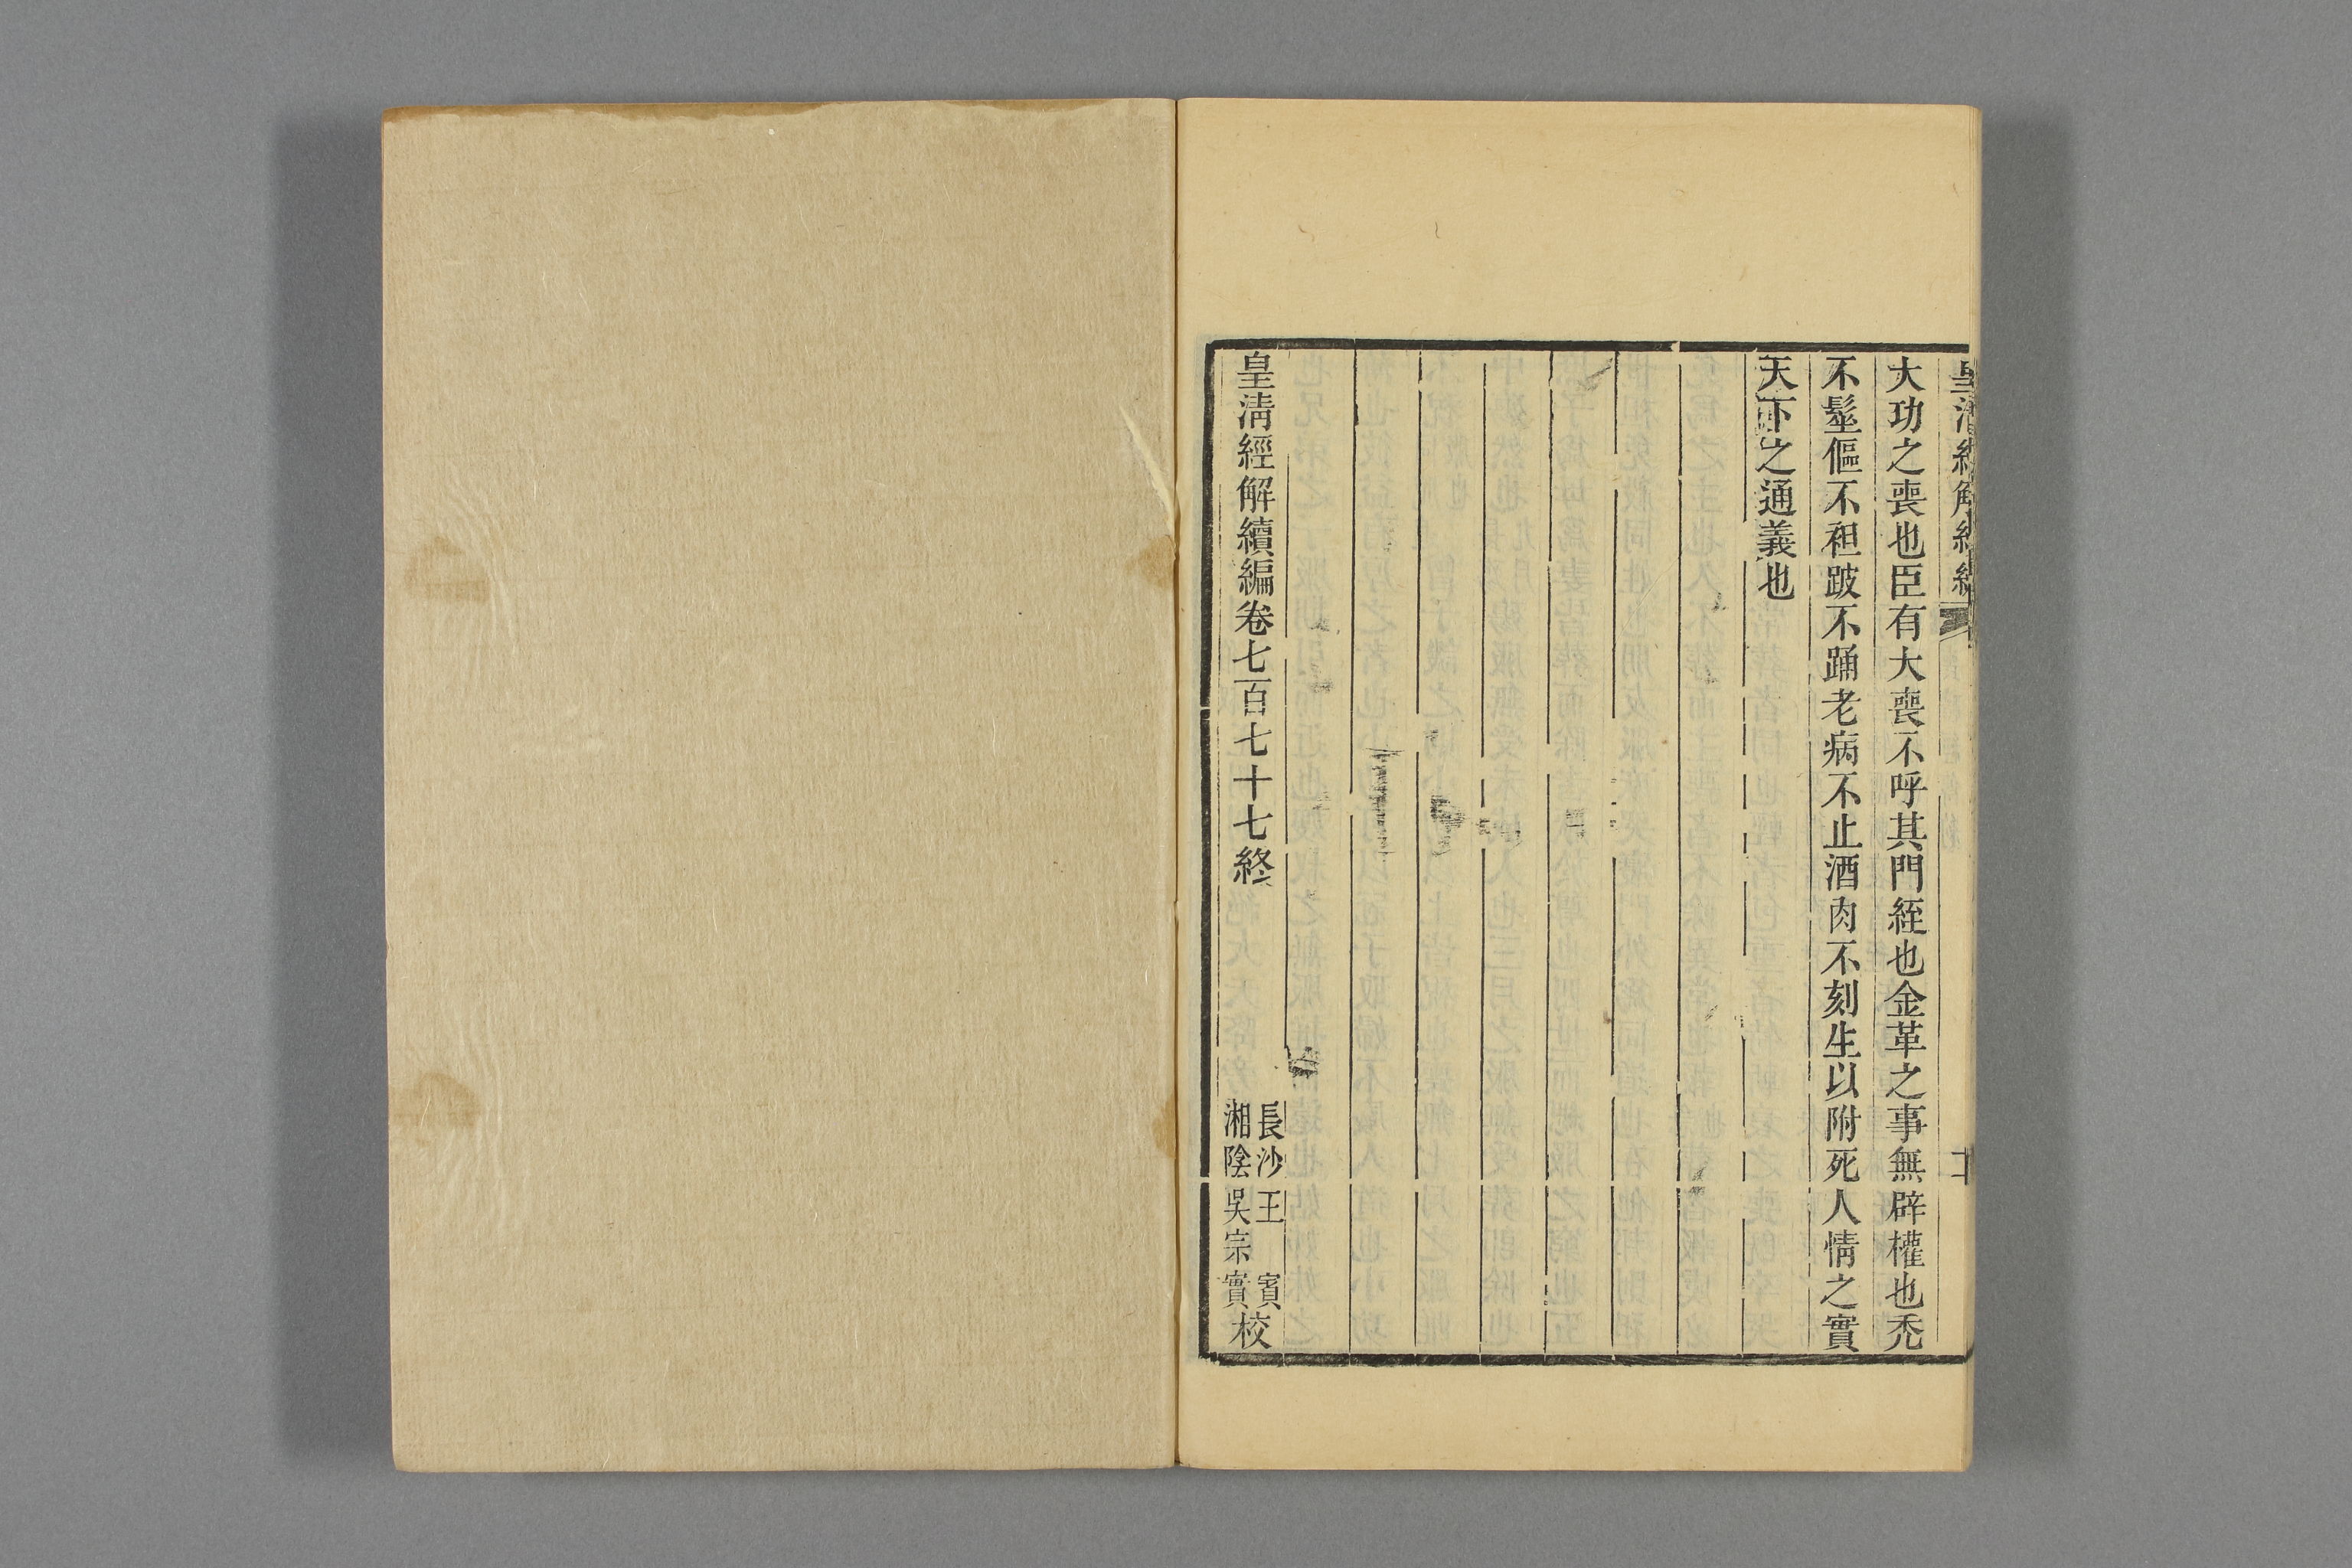 皇清經解續編
大功之喪也臣有大喪不呼其門絰也金革之事無辟權也禿
不髽傴不袒跛不踊老病不止酒肉不刻生以附死人情之實
天下之通義也
皇清經解續編卷七百七十七終
長沙王賓
湘陰吳宗實
校